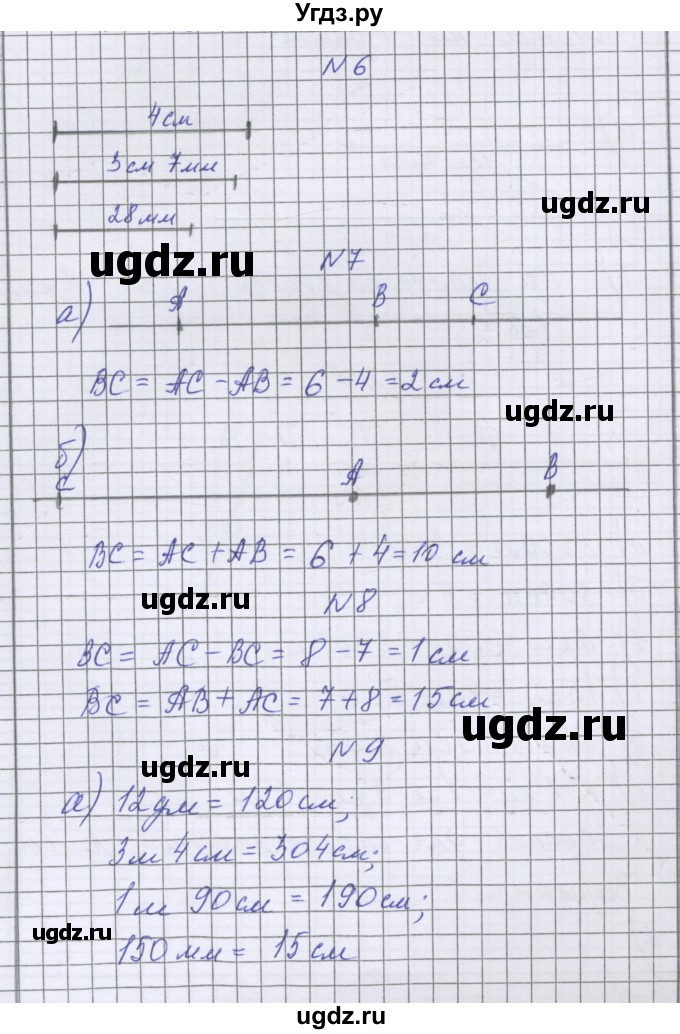 Угдз.ру
N 6
4см
3см 7мм
ugdz.ru
28мм
ugdz.ru
N7
а) A B C
BC = AC - AB = 6 - 4 = 2 см
ugdz.ru
б)
C A B
BC = AC + AB = 6 + 4 = 10 см
ugdz.ru
N 8
BC = AC - BC = 8 - 7 = 1 см
BC = AB + AC = 7 + 8 = 15 см
ugdz.ru
N 9
ugdz.ru
а) 12дм = 120см;
3м 4см = 304см;
1м 90см = 190см;
ugdz.ru
150мм = 15см
ugdz.ru